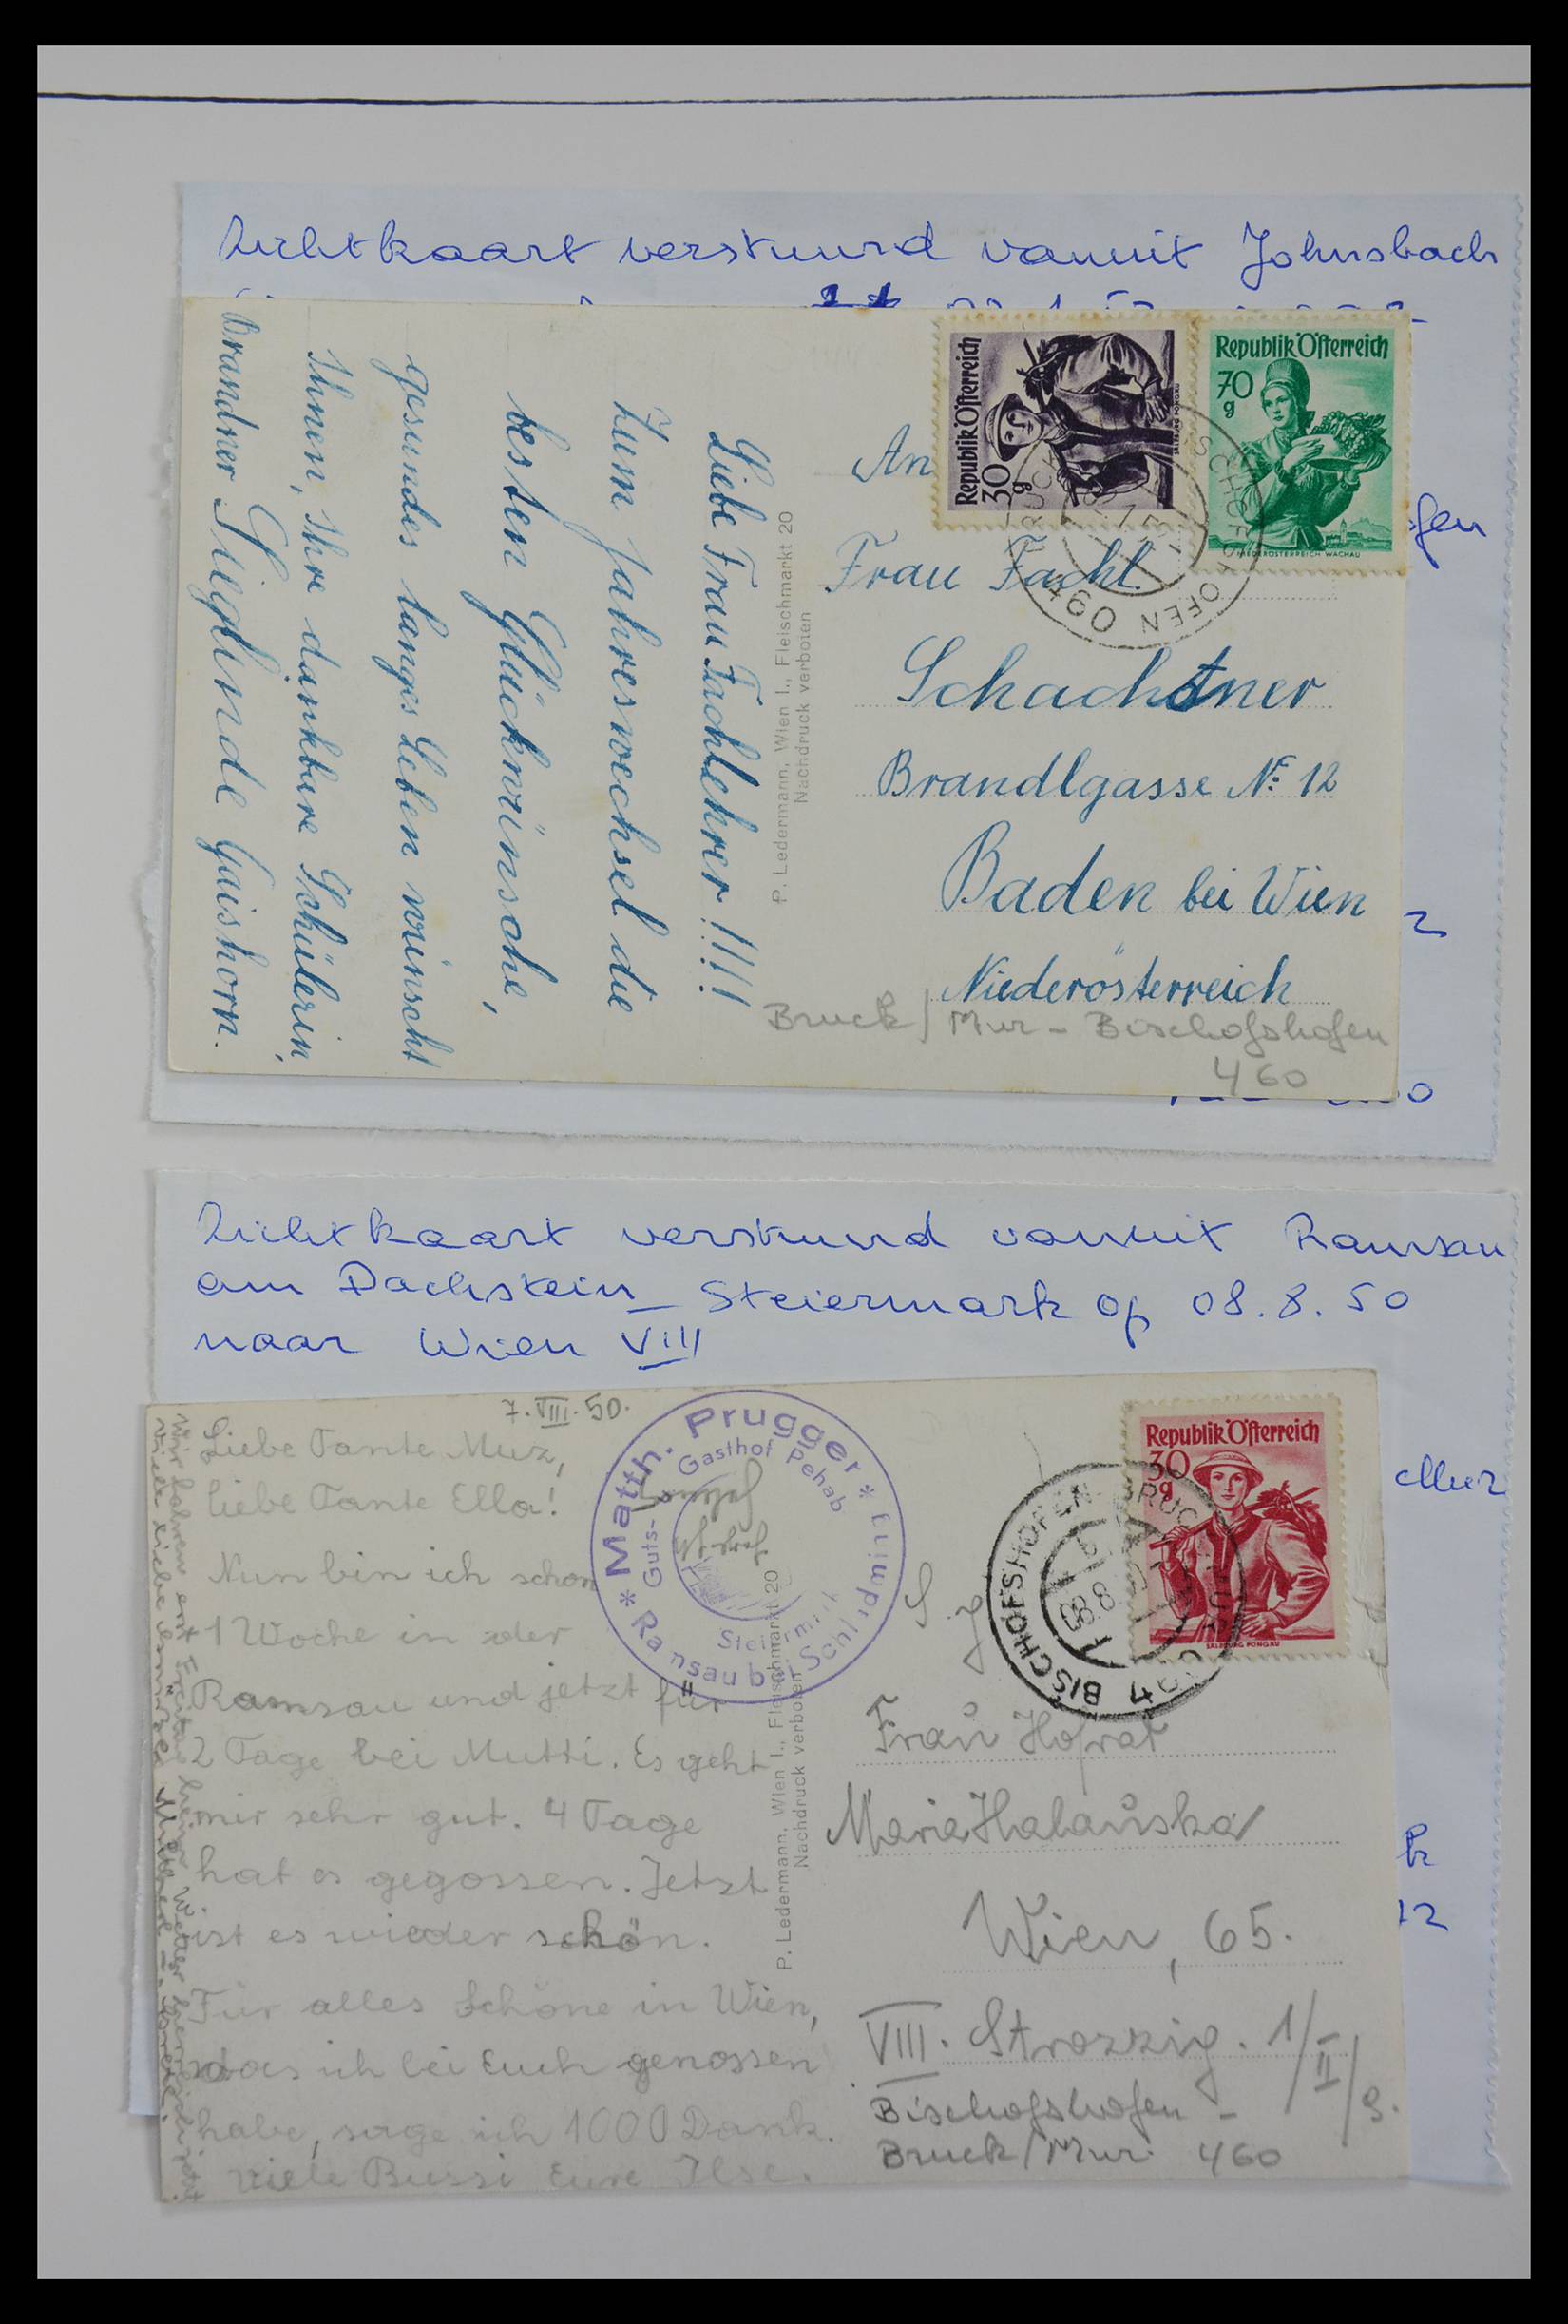 Zichtkaart verstuurd vanuit Johnsbach
Republik Österreich
30 g
SALZBURG PONGAU
Republik Österreich
70 g
NIEDERÖSTERREICH WACHAU
An
Frau Fachl.
Schachtner
Brandlgasse Nº 12
Baden bei Wien
Niederösterreich
Bruck/Mur - Bischofshofen
460
P. Ledermann, Wien I., Fleischmarkt 20
Nachdruck verboten
Liebe Frau Fachlehrer!!!!
Zum Jahreswechsel die
besten Glückwünsche,
gesundes langes Leben wünscht
Ihnen, Ihre dankbare Schülerin,
Brandner Sieglinde Gaishorn.
Zichtkaart verstuurd vanuit Ramsau
am Dachstein - Steiermark op 08.8.50
naar Wien VIII
7.VIII.50.
Liebe Tante Muz,
liebe Tante Ella!
Nun bin ich schon
1 Woche in der
Ramsau und jetzt für
2 Tage bei Mutti. Es geht
mir sehr gut. 4 Tage
hat es gegossen. Jetzt
ist es wieder schön.
Für alles Schöne in Wien,
das ich bei Euch genossen
habe, sage ich 1000 Dank.
Viele Bussi Eure Ilse.
* Matth. Prugger *
Gasthof Pehab
Ramsau bei Schladming
Steiermark
P. Ledermann, Wien I., Fleischmarkt 20
Nachdruck verboten
Republik Österreich
30 g
SALZBURG PONGAU
BISCHOFSHOFEN - BRUCK
08.8
Frau Hofrat
Maria Halauska
Wien, 65.
VIII. Strozzig. 1/II/9.
Bischofshofen -
Bruck/Mur 460